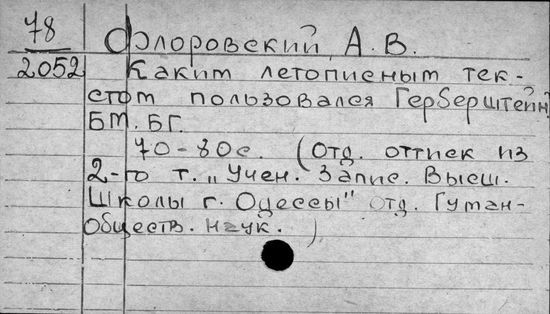 78
Флоровский, А. В.
2052
Каким летописным тек-
стом пользовался Герберштейн?
БМ. БГ.
70-80с. (Отд. оттиск из
2-го т. „Учен. Запис. Высш.
Школы г. Одессы" отд. Гуман-
обществ. наук.)